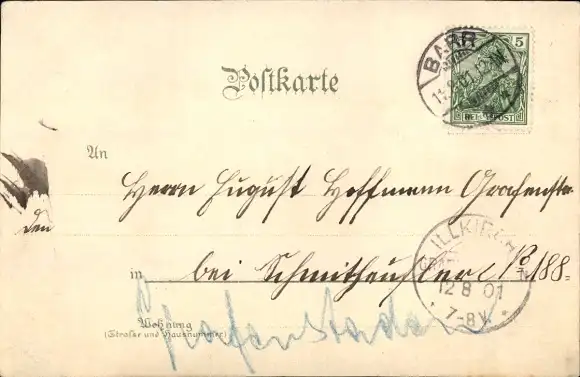 Postkarte
5
BARR
11.8.01.12
REICHSPOST
An
Herrn August Hoffmann Grafenst
den
in bei Schmitheusler No 188.
ILLKIRCH
12 8 01
7-8V.
Wohnung
(Straße und Hausnummer)
Grafenstaden